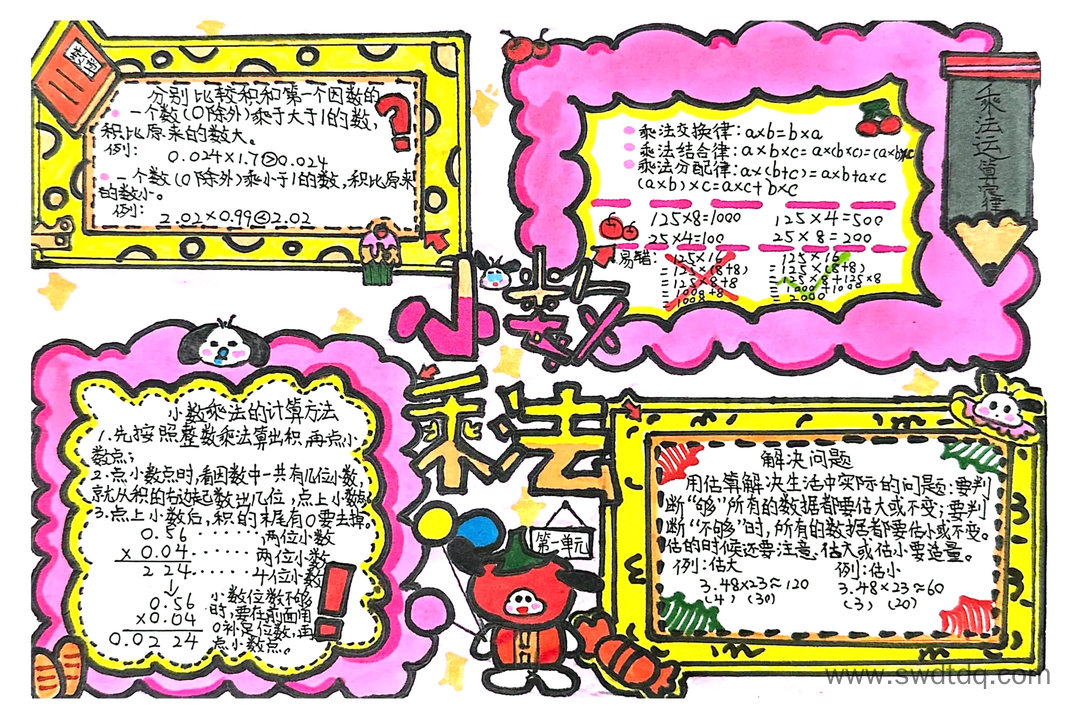 分别比较积和第一个因数的
一个数(0除外)乘于大于1的数,
积比原来的数大。
例:
0.024×1.7>0.024
一个数(0除外)乘小于1的数,积比原来
的数小。
例:
2.02×0.99<2.02
乘法运算定律
乘法交换律:a×b=b×a
乘法结合律:a×b×c=a×(b×c)=(a×b)×c
乘法分配律:a×(b+c)=a×b+a×c
(a×b)×c=a×c+b×c
125×8=1000
125×4=500
25×4=100
25×8=200
易错:
125×16
=125×(8+8)
=125×8+8
=1000+8
=1008
125×16
=125×(8+8)
=125×8+125×8
=1000+1000
=2000
小数
乘法
第一单元
小数乘法的计算方法
1.先按照整数乘法算出积,再点小
数点;
2.点小数点时,看因数中一共有几位小数,
就从积的右边起数出几位,点上小数点。
3.点上小数后,积的末尾有0要去掉。
0.56·······两位小数
×0.04·······两位小数
224······4位小数
↓
0.56
×0.04
0.0224
小数位数不够
时,要在前面用
0补足位数,再
点小数点。
解决问题
用估算解决生活中实际的问题:要判
断“够”所有的数据都要估大或不变;要判
断“不够”时,所有的数据都要估小或不变。
估的时候还要注意,估大或估小要适量。
例:估大
3.48×23≈120
(4) (30)
例:估小
3.48×23≈60
(3) (20)
www.swdtdq.com